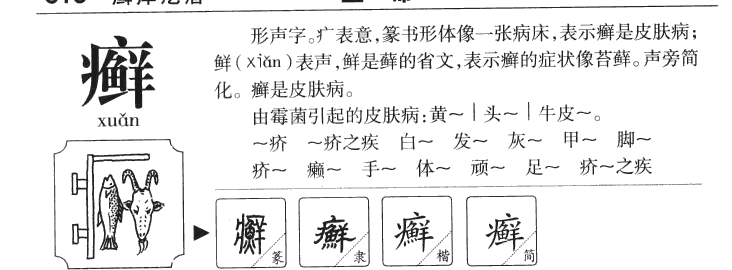 癣
xuǎn
形声字。疒表意，篆书形体像一张病床，表示癣是皮肤病；
鲜（xiǎn）表声，鲜是藓的省文，表示癣的症状像苔藓。声旁简
化。癣是皮肤病。
由霉菌引起的皮肤病：黄～｜头～｜牛皮～。
～疥 ～疥之疾 白～ 发～ 灰～ 甲～ 脚～
疥～ 癞～ 手～ 体～ 顽～ 足～ 疥～之疾
癬 篆 癬 隶 癬 楷 癣 简